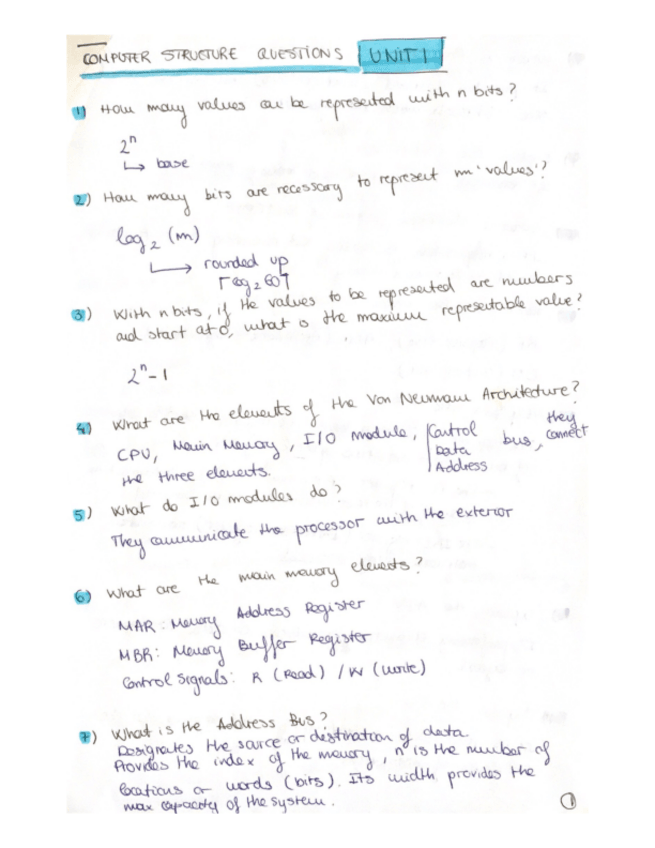 COMPUTER STRUCTURE QUESTIONS UNIT 1
1) How many values can be represented with n bits?
2ⁿ
↳ base
2) How many bits are necessary to represent 'm' values'?
log₂ (m)
↳ rounded up
3) With n bits, if the values to be represented are numbers
and start at 0, what is the maximum representable value?
2ⁿ-1
4) What are the elements of the Von Neumann Architecture?
CPU, Main Memory, I/O module, Control bus, they connect
Data
Address
the three elements.
5) What do I/O modules do?
They communicate the processor with the exterior
6) What are the main memory elements?
MAR: Memory Address Register
MBR: Memory Buffer Register
Control Signals: R (Read) / W (Write)
7) What is the Address Bus?
Designates the source or destination of data.
Provides the index of the memory, n is the number of
locations or words (bits). Its width provides the
max capacity of the system.
1